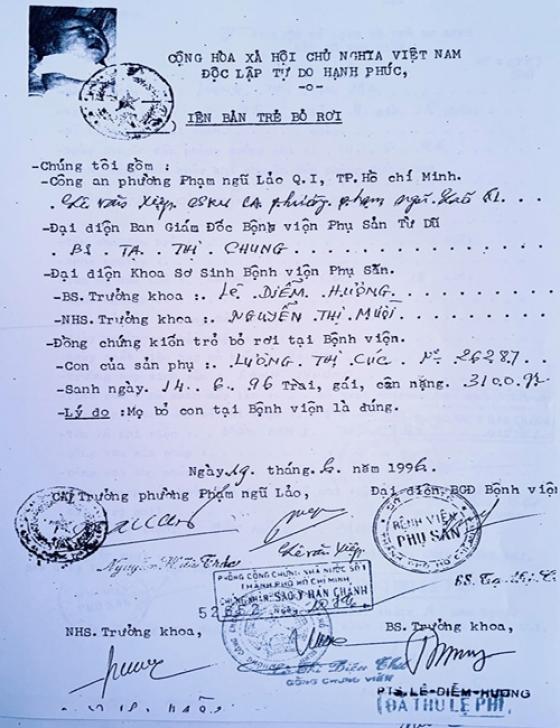 CỘNG HÒA XÃ HỘI CHỦ NGHĨA VIỆT NAM
ĐỘC LẬP TỰ DO HẠNH PHÚC,
-o-
IÊN BẢN TRẺ BỎ RƠI
-Chúng tôi gồm :
-Công an phường Phạm ngũ Lảo Q.I, TP.Hồ chí Minh.
Lê văn Xiệp. CSKV CA phường phạm ngũ Lão Q1.
-Đại diện Ban Giám Đốc Bệnh viện Phụ Sản Từ Dũ
. BS . TẠ . THỊ . CHUNG
-Đại diện Khoa Sơ Sinh Bệnh viện Phụ Sản.
-BS.Trưởng khoa :. Lê . DIỄM . HƯƠNG
-NHS.Trưởng khoa :. NGUYỄN . THỊ . MƯỜI
-Đồng chứng kiến trẻ bỏ rơi tại Bệnh viện.
-Con của sản phụ :. LƯƠNG . THỊ CÚC . Nº 26287
-Sanh ngày. 14 . 6 . 96 Trai, gái, cân nặng. 3100.gr
-Lý do :Mẹ bỏ con tại Bệnh viện là đúng.
Ngày.19. tháng.6. năm 1996.
CA Trưởng phường Phạm ngũ Lảo, Đại diện BGĐ Bệnh viện
BỆNH VIỆN
PHỤ SẢN
Lê văn Xiệp
PHÒNG CÔNG CHỨNG NHÀ NƯỚC SỐ 1
THÀNH PHỐ HỒ CHÍ MINH
CHỨNG NHẬN SAO Y BẢN CHÁNH
NHS. Trưởng khoa, BS. Trưởng khoa,
CÔNG CHỨNG VIÊN
PTS. LÊ-DIỄM-HƯƠNG
ĐÃ THU LỆ PHÍ